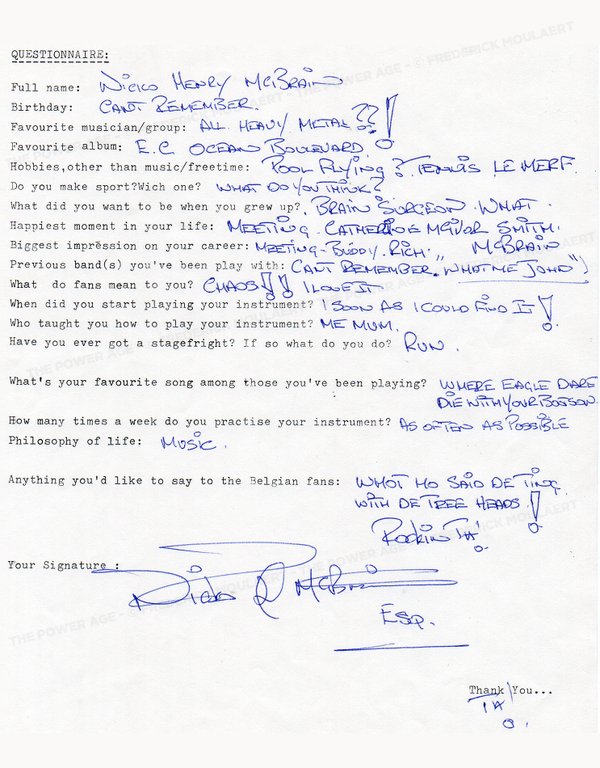 QUESTIONNAIRE:
Full name: Nicko Henry McBrain
Birthday: CANT REMEMBER.
Favourite musician/group: ALL HEAVY METAL ??!
Favourite album: E.C OCEAN BOULEVARD.
Hobbies,other than music/freetime: POOL Flying? TENNIS LE MERF.
Do you make sport?Wich one? WHAT DO YOU THINK?
What did you want to be when you grew up? BRAIN SURGEON. WHAT.
Happiest moment in your life: MEETING. CATHERINE McIVOR SMITH.
Biggest impression on your career: MEETING. BUDDY. RICH. ,, McBRAIN
Previous band(s) you've been play with: CANT REMEMBER. WHAT ME JOHO")
What do fans mean to you? CHAOS!! I LOVE IT
When did you start playing your instrument? I SOON AS I COULD FIND IT!
Who taught you how to play your instrument? ME MUM.
Have you ever got a stagefright? If so what do you do? RUN.
What's your favourite song among those you've been playing? WHERE EAGLE DARE
DIE WITH YOUR BOTSON.
How many times a week do you practise your instrument? AS OFTEN AS POSSIBLE
Philosophy of life: MUSIC.
Anything you'd like to say to the Belgian fans: WHOT MO SAID DE TING.
WITH DE TREE HEADS!
ROCKIN TA.
Your Signature : Nicko McBrain
ESQ.
Thank You...
TA
THE POWER AGE - © FREDERICK MOULAERT